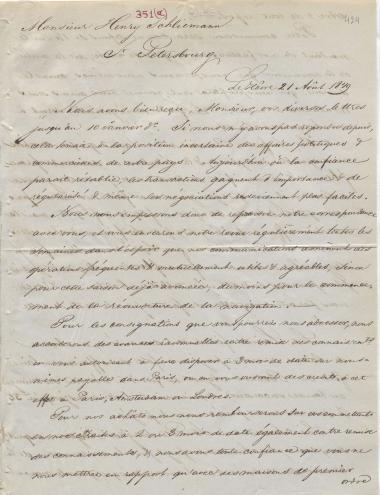 351(a)
424
Monsieur Henry Schliemann
St. Petersbourg
Le Hâvre 21 Août 1849
Nous avons bien reçu, Monsieur, vos diverses lettres
jusqu'au 10 Janvier dr. Si nous n'y avons pas répondu depuis,
cela tenait à la position incertaine des affaires politiques &
commerciales, de notre pays. Aujourd'hui la confiance
parait rétablie, les transactions gagnent d'importance & de
régularité & même les négociations redeviennent plus faciles.
Nous nous empressons donc de reprendre notre correspondance
avec vous, et vous enverrons notre revue régulièrement toutes les
semaines dans l'espoir que nos communications amènent des
opérations fréquentes & mutuellement utiles & agréables, si non
pour cette saison déjà avancée, du moins pour le commence-
ment de la réouverture de la navigation.
Pour les consignations que vous pourriez nous adresser, nous
accorderons des avances raisonnables contre remise des connaissemts.
en vous autorisant à faire disposer à 3 mois de date sur nous-
mêmes payables dans Paris, ou en vous ouvrant des crédits, à cet
effet à Paris, Amsterdam ou Londres.
Pour nos achats nous nous rembourserons sur les commettants
en nos traites à 2 ou 3 mois de date également contre remise
des connaissements, & nous avons toute confiance que vous ne
nous mettrez en rapport qu'avec des maisons de premier
ordre